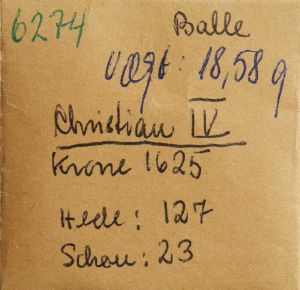 6274 Balle
Vægt: 18,58 g
Christian IV
Krone 1625
Hede: 127
Schou: 23